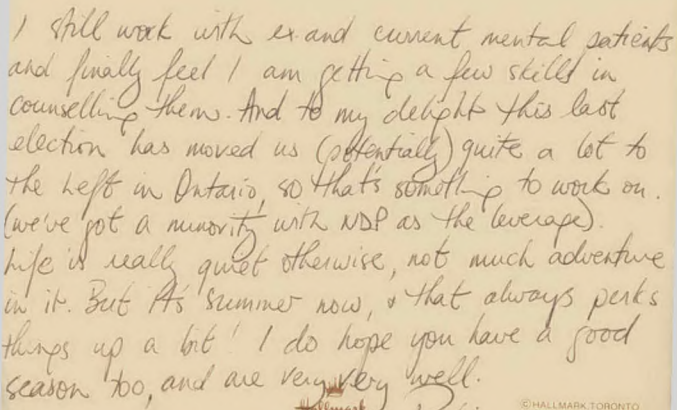 I still work with ex and current mental patients
and finally feel I am getting a few skills in
counselling them. And to my delight this last
election has moved us (potentially) quite a lot to
the Left in Ontario, so that's something to work on.
(we've got a minority with NDP as the leverage).
Life is really quiet otherwise, not much adventure
in it. But it's summer now, & that always perks
things up a bit! I do hope you have a good
season too, and are very very well.
Hallmark
©HALLMARK, TORONTO